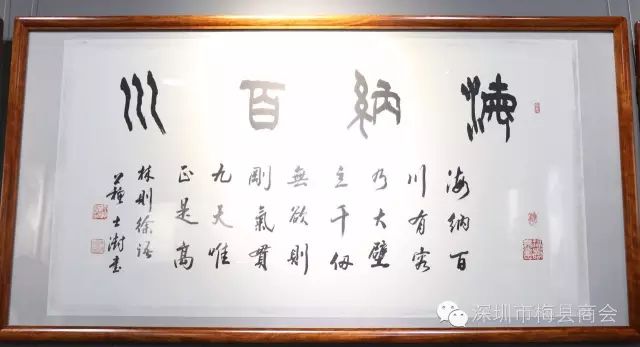 海納百川
海納百
川有容
乃大壁
立千仞
無欲則
剛氣貫
九天唯
正是高
林則徐語
蘇士澍書
深圳市梅县商会